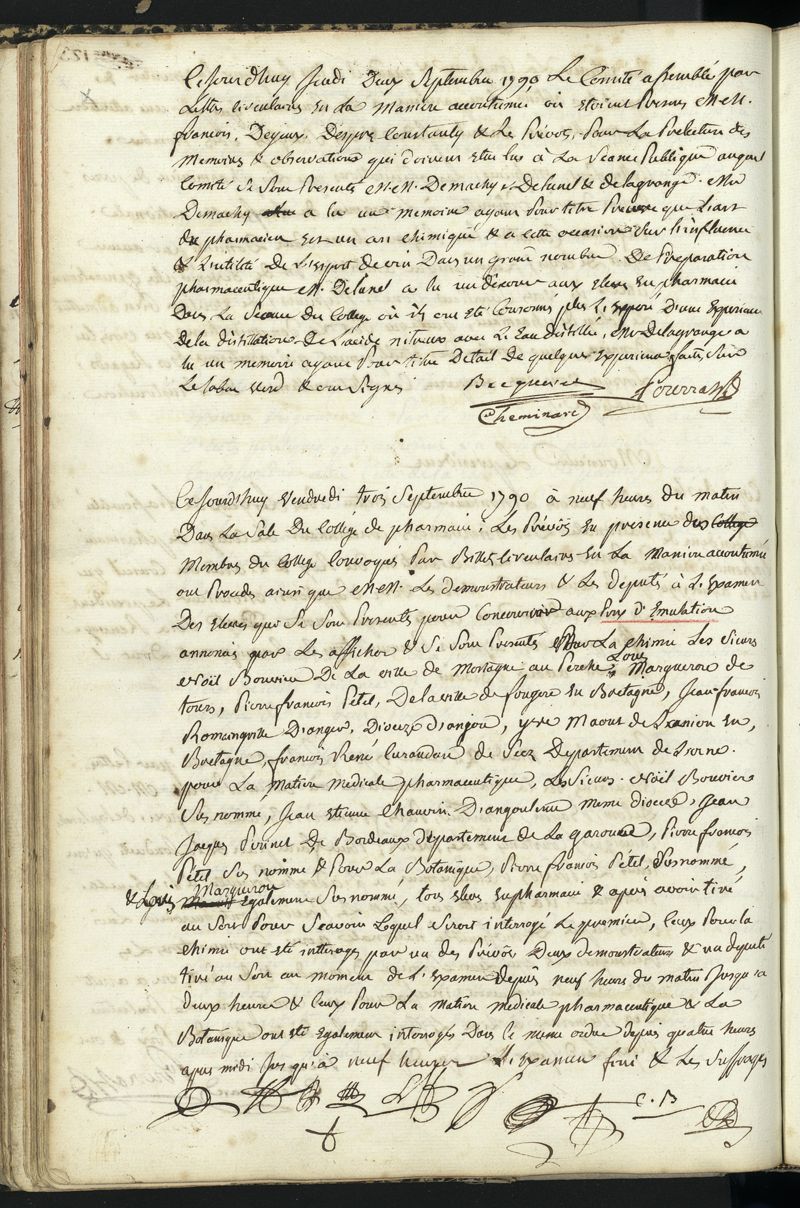 Cejourdhuy Jeudi Deux Septembre 1790 Le Comité assemblé par
Lettres circulaires En la Maniere accoutumée où étoient Presens MM.
francois, Dejeux, Despres Constanty & Les Prévots, Pour La Prelecture des
Memoires & observations qui doivent Etre lus à La Seance Publique auquel
Comité Se Sont Presentés MM. Demachy, Delunel & delagrange. Mr
Demachy a lu un memoire ayant Pour titre Preuve que L'art
du pharmacien Est un art chimique & a cette occasion Sur L'influence
& L'utilité de L'Esprit de vin Dans un grand nombre De Preparation
pharmaceutique M. Delunel a lu un discours aux Eleves En pharmacie
Dans La Seance du College où ils ont été Couronnés plus L'exposé D'une Experience
de la distillation de L'acide nitreux avec L'Eau distillée, Mr Delagrange a
lu un memoire ayant Pour titre Détail de quelques Experiences faites Sur
Le tabac verd & ont Signé
Becqueret
Fourrassy
Cheminard
Cejourdhuy Vendredi trois Septembre 1790 à neuf heures du matin
Dans La Sale Du College de pharmacie, Les Prévots En presence des College
Membres du College Convoqués Par Billets Circulaires En La Maniere accoutumée
ont Procédés ainsi que MM. Les demonstrateurs & Les députés à L'Examen
Des Eleves qui Se Sont Presentés pour Concourir aux Prix d'Emulation
annoncés par Les affiches & Se Sont Presentés Pour La chimie Les Sieurs
Noël Bouvier De La ville de Mortagne au Perche, Louis Margueron de
tours, Pierre francois Pétel, De la ville de fougere En Bretagne, Jean francois
Romainville D'anger, Dioceze d'anjou, yves Maout de Lannion En
Bretagne, francois René Curandeau de Seez Departement de L'orne.
pour La Matiere Medicale pharmaceutique, Les Sieurs Noël Bouvier
Susnommé, Jean Etienne Chauvin D'angoulême meme dioceze, Jean
Jacques Perinet De Bordeaux departement de La garonne, Pierre francois
Pétel Susnommé & Pour La Botanique, Pierre francois Pétel, Susnommé,
& Louis Margueron Egalement Susnommé, tous Eleves En pharmacie & après avoir tiré
au Sort Pour Scavoir Lequel Seroit interrogé Le premier, Ceux Pour la
chimie ont été interrogés par un des Prévôts Deux demonstrateurs & un député
tiré au Sort au moment de L'Examen depuis neuf heures du matin Jusqu'a
deux heures & Ceux Pour La Matiere medicale pharmaceutique & La
Botanique ont été Egalement interrogés Dans le meme ordre depuis quatre heures
apres midi Jusqu'à neuf heures L'Examen fini & Les Suffrages
C. B